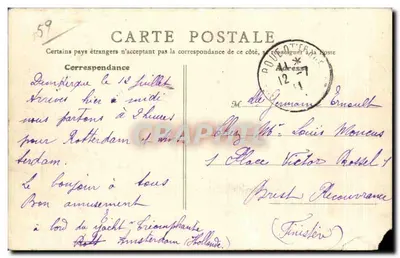 59
CARTE POSTALE
Certains pays étrangers n'acceptant pas la correspondance de ce côté, se renseigner à la Poste
Correspondance
Dunkerque le 12 juillet
Arrivés hier à midi
nous partons à 2 heures
pour Rotterdam et Ams
terdam.
Le bonjour à tous
Bon amusement
à bord du Yacht
Amsterdam (Hollande)
12 -7
11
Adresse
M elle Germain Ernoult
chez Mr Louis
1 Place Victor Rossel 1
Brest Recouvrance
(Finistère)
CPARAMA